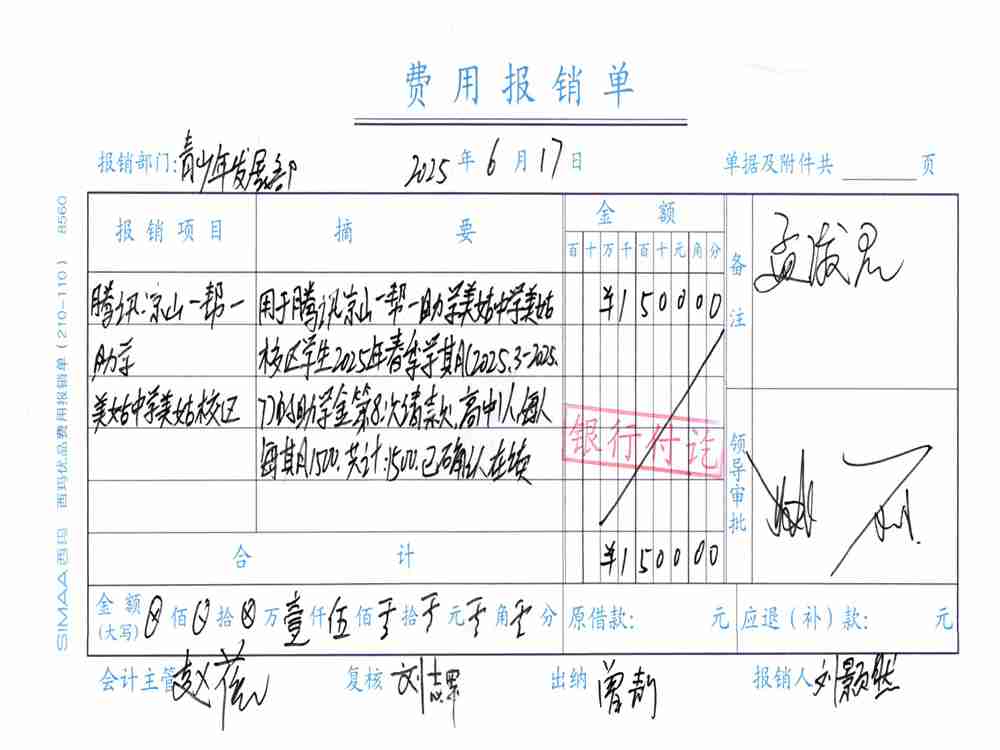 费用报销单
报销部门:青少年发展部 2025年6月17日 单据及附件共 页
报销项目 摘要 金额 备注
百十万千百十元角分
腾讯凉山一帮一 用于腾讯凉山一帮一助学美姑中学美姑 ¥150000
助学 校区学生2025年春季学期(2025.3-2025.
美姑中学美姑校区 7)的助学金第8次请款,高中1人,每人
每期1500,共计:1500.已确认在续
银行付讫
领导审批
合计 ¥150000
金额(大写) ⊗佰⊗拾⊗万壹仟伍佰 拾 元 角 分 原借款: 元 应退(补)款: 元
会计主管 复核 出纳 报销人 刘颢然
SIMAA西玛 西玛优品费用报销单(210-110) 8560